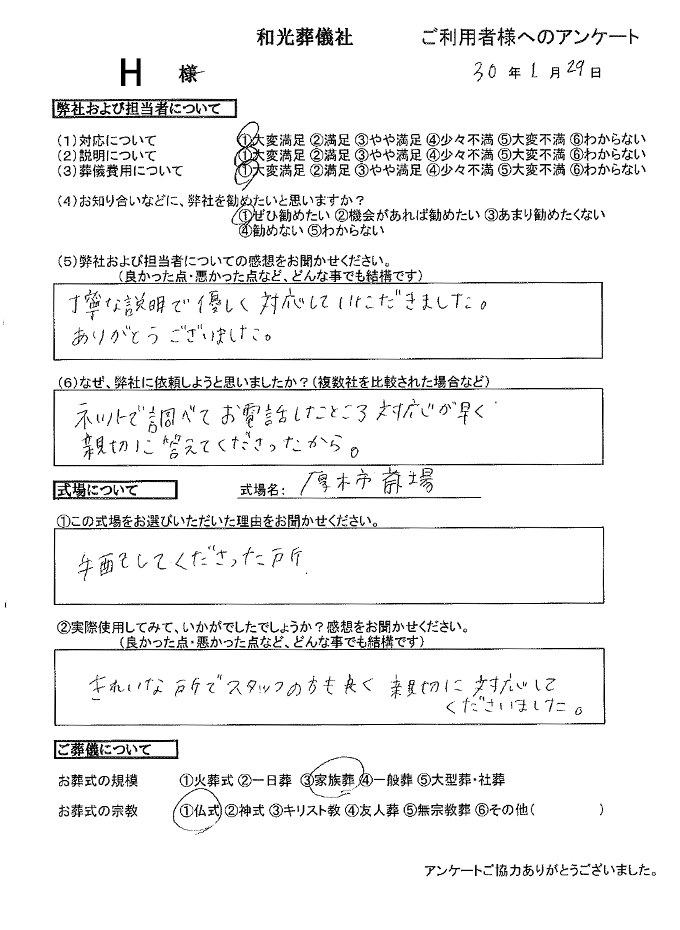 和光葬儀社 ご利用者様へのアンケート
H 様
30年1月29日
弊社および担当者について
(1)対応について ①大変満足 ②満足 ③やや満足 ④少々不満 ⑤大変不満 ⑥わからない
(2)説明について ①大変満足 ②満足 ③やや満足 ④少々不満 ⑤大変不満 ⑥わからない
(3)葬儀費用について ①大変満足 ②満足 ③やや満足 ④少々不満 ⑤大変不満 ⑥わからない
(4)お知り合いなどに、弊社を勧めたいと思いますか?
①ぜひ勧めたい ②機会があれば勧めたい ③あまり勧めたくない
④勧めない ⑤わからない
(5)弊社および担当者についての感想をお聞かせください。
(良かった点・悪かった点など、どんな事でも結構です)
丁寧な説明で優しく対応していただきました。
ありがとうございました。
(6)なぜ、弊社に依頼しようと思いましたか?(複数社を比較された場合など)
ネットで調べてお電話したところ対応が早く
親切に答えてくださったから。
式場について
式場名: 厚木市斎場
①この式場をお選びいただいた理由をお聞かせください。
をしてくださった所
②実際使用してみて、いかがでしたでしょうか?感想をお聞かせください。
(良かった点・悪かった点など、どんな事でも結構です)
きれいな所でスタッフの方も良く親切に対応して
くださいました。
ご葬儀について
お葬式の規模 ①火葬式 ②一日葬 ③家族葬 ④一般葬 ⑤大型葬・社葬
お葬式の宗教 ①仏式 ②神式 ③キリスト教 ④友人葬 ⑤無宗教葬 ⑥その他( )
アンケートご協力ありがとうございました。